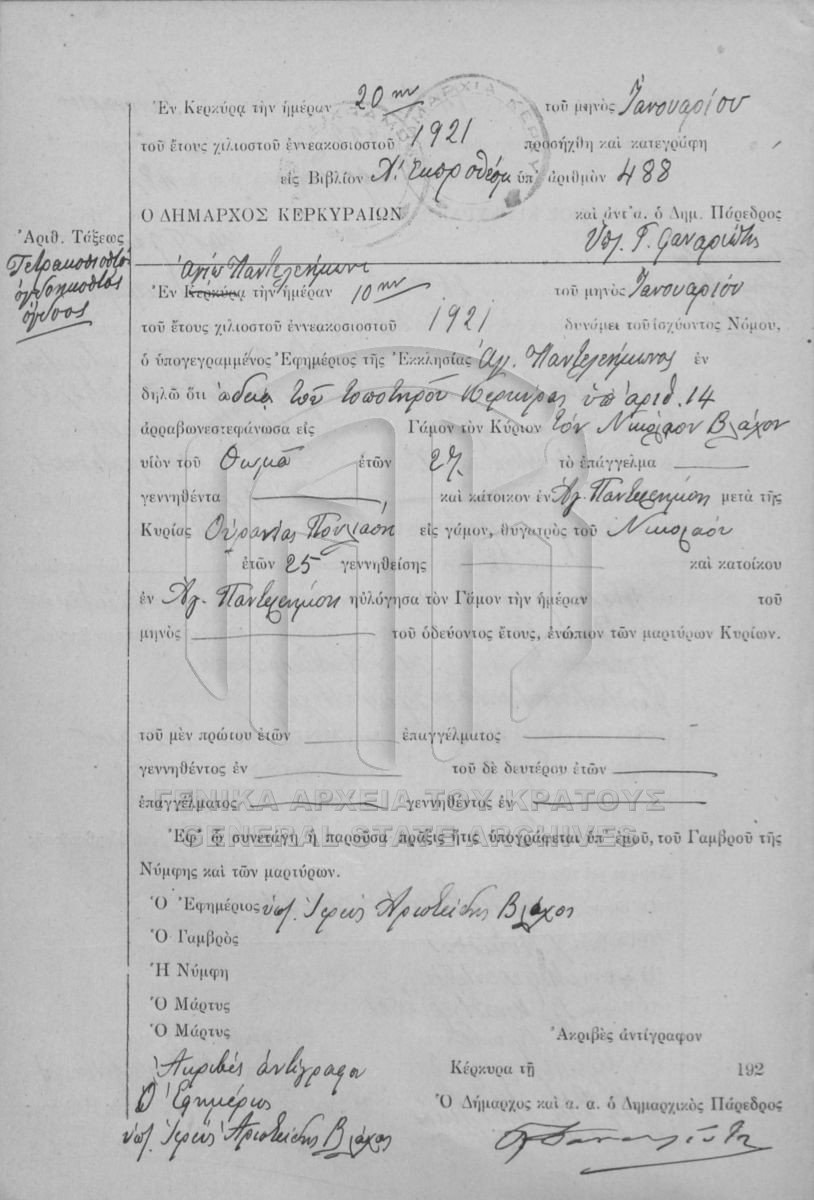 Ἐν Κερκύρᾳ τὴν ἡμέραν 20ην τοῦ μηνὸς Ἰανουαρίου
τοῦ ἔτους χιλιοστοῦ ἐννεακοσιοστοῦ 1921 προσήχθη καὶ κατεγράφη
εἰς Βιβλίον Λ. Ἐκπροθέσμ ὑπ' ἀριθμὸν 488
Ο ΔΗΜΑΡΧΟΣ ΚΕΡΚΥΡΑΙΩΝ καὶ ἀντ' α. ὁ Δημ. Πάρεδρος
Ἀριθ. Τάξεως
Τετρακοσιοστὸς
ὀγδοηκοστὸς
ὄγδοος
Ὑπ. Γ. Φαναριώτης
Ἁγίῳ Παντελεήμονι
Ἐν Κερκύρᾳ τὴν ἡμέραν 10ην τοῦ μηνὸς Ἰανουαρίου
τοῦ ἔτους χιλιοστοῦ ἐννεακοσιοστοῦ 1921 δυνάμει τοῦ ἰσχύοντος Νόμου,
ὁ ὑπογεγραμμένος Ἐφημέριος τῆς Ἐκκλησίας Ἁγ. Παντελεήμονος ἐν
δηλῶ ὅτι ἀδείᾳ τοῦ τοποτηροῦ Κερκύρας ὑπ' ἀριθ. 14
ἀρραβωνεστεφάνωσα εἰς Γάμον τὸν Κύριον τὸν Νικόλαον Βλάχον
υἱὸν τοῦ Θωμᾶ ἐτῶν 27 τὸ ἐπάγγελμα
γεννηθέντα καὶ κάτοικον ἐν Ἁγ. Παντελεήμονι μετὰ τῆς
Κυρίας Οὐρανίας Πουλιάση εἰς γάμον, θυγατρὸς τοῦ Νικολάου
ἐτῶν 25 γεννηθείσης καὶ κατοίκου
ἐν Ἁγ. Παντελεήμονι ηὐλόγησα τὸν Γάμον τὴν ἡμέραν τοῦ
μηνὸς τοῦ ὁδεύοντος ἔτους, ἐνώπιον τῶν μαρτύρων Κυρίων.
τοῦ μὲν πρώτου ἐτῶν ἐπαγγέλματος
γεννηθέντος ἐν τοῦ δὲ δευτέρου ἐτῶν
ἐπαγγέλματος γεννηθέντος ἐν
ΓΕΝΙΚΑ ΑΡΧΕΙΑ ΤΟΥ ΚΡΑΤΟΥΣ
GENERAL STATE ARCHIVES
Ἐφ' ᾧ συνετάγη ἡ παροῦσα πρᾶξις ἥτις ὑπογράφεται ὑπ' ἐμοῦ, τοῦ Γαμβροῦ τῆς
Νύμφης καὶ τῶν μαρτύρων.
Ὁ Ἐφημέριος ὑπ. Ἱερεὺς Ἀριστείδης Βλάχος
Ὁ Γαμβρὸς
Ἡ Νύμφη
Ὁ Μάρτυς
Ὁ Μάρτυς Ἀκριβὲς ἀντίγραφον
Ἀκριβὲς ἀντίγραφον Κέρκυρα τῇ 192
Ὁ Ἐφημέριος Ὁ Δήμαρχος καὶ α. α. ὁ Δημαρχικὸς Πάρεδρος
ὑπ. Ἱερεὺς Ἀριστείδης Βλάχος